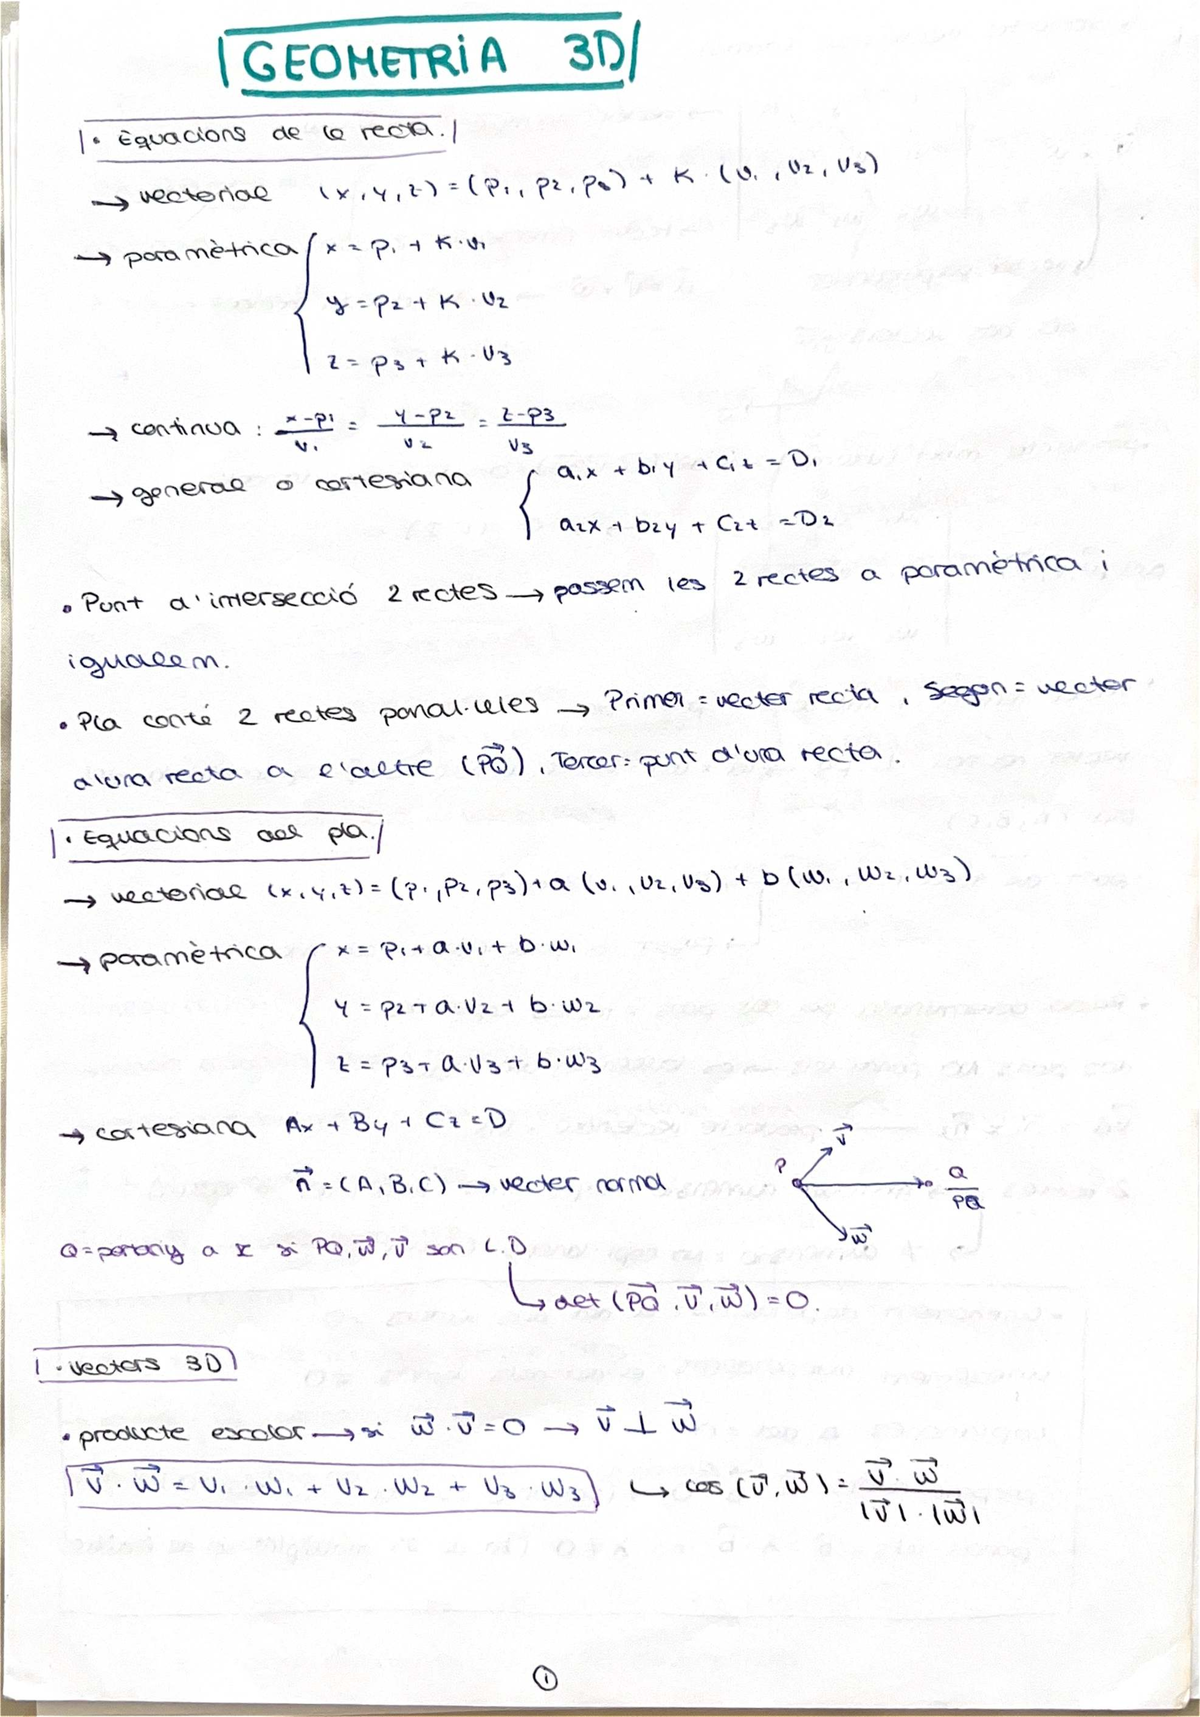 GEOMETRIA 3D
• Equacions de la recta.
→ vectorial (x, y, z) = (p1, p2, p3) + K · (v1, v2, v3)
→ paramètrica { x = p1 + K · v1
y = p2 + K · v2
z = p3 + K · v3
→ continua : x-p1/v1 = y-p2/v2 = z-p3/v3
→ general o cartesiana { a1x + b1y + c1z = D1
a2x + b2y + c2z = D2
• Punt d'intersecció 2 rectes → passem les 2 rectes a paramètrica i
igualem.
• Pla conté 2 rectes paral·leles → Primer = vector recta, Segon = vector
d'una recta a l'altre (PQ⃗), Tercer: punt d'una recta.
• Equacions del pla.
→ vectorial (x, y, z) = (p1, p2, p3) + a (v1, v2, v3) + b (w1, w2, w3)
→ paramètrica { x = p1 + a · v1 + b · w1
y = p2 + a · v2 + b · w2
z = p3 + a · v3 + b · w3
→ cartesiana Ax + By + Cz = D
n⃗ = (A, B, C) → vector normal
P v⃗ Q PQ w⃗
Q = pertany a π si PQ, w⃗, v⃗ son L.D
↳ det (PQ⃗, v⃗, w⃗) = 0.
• vectors 3D
• producte escalar → si w⃗ · v⃗ = 0 → v⃗ ⊥ w⃗
v⃗ · w⃗ = v1 · w1 + v2 · w2 + v3 · w3 ↳ cos (v⃗, w⃗) = v⃗ · w⃗ / |v⃗| · |w⃗|
1